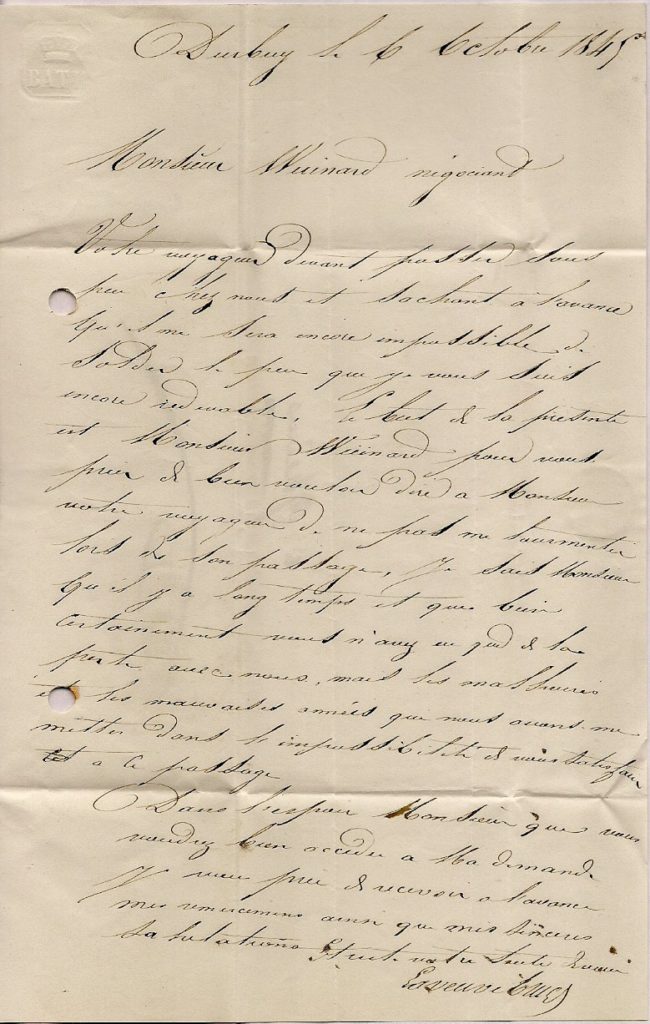 BATH
Durbuy le 6 Octobre 1845
Monsieur Wuinard négociand
Votre voyageur devant passer sous
peu chez nous et sachant à l'avance
qu'il me sera encore impossible de
solder le peu que je vous suis
encore redevable, le but de la présente
est Monsieur Wuinard pour vous
prier de bien vouloir dire a Monsieur
votre voyageur de ne pas me tourmenter
lors de son passage, Je sais Monsieur
qu'il y a long temps et que bien
certainement vous n'avez eu que de la
perte avec nous, mais les malheures
et les mauvaises années que nous avons me
mettes dans l'impossibilité de vous satisfaire
a ce passage
Dans l'espoir Monsieur que vous
voudrez bien accéder a Ma demande
Je vous prie de recevoir a l'avance
mes remerciemens ainsi que mes sincères
salutations votre toute
La veuve